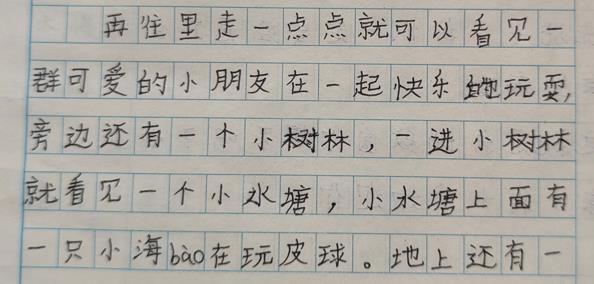 再往里走一点点就可以看见一
群可爱的小朋友在一起快乐地玩耍,
旁边还有一个小树林，一进小树林
就看见一个小水塘，小水塘上面有
一只小海bào在玩皮球。地上还有一